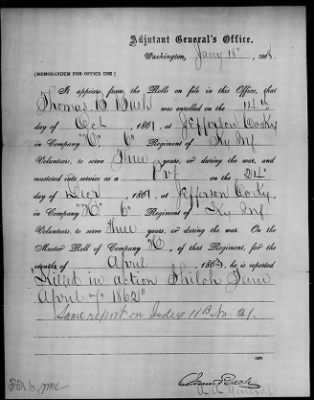 Adjutant General's Office,
Washington, Jany 18th, 186
[MEMORANDUM FOR OFFICE USE.]
It appears from the Rolls on file in this Office, that
Thomas B was enrolled on the 14th
day of Oct, 1861, at Jefferson
in Company 6" Regiment of Ky Inf
Volunteers, to serve Three years, or during the war, and
mustered into service as a Pvt on the 24"
day of Decr, 1861, at Jefferson
in Company 6" Regiment of Ky Inf
Volunteers, to serve Three years, or during the war. On the
Muster Roll of Company, of that Regiment, for the
months of April, 186, he is reported
Killed in action Shiloh Tenn
April 1862"
Same report on Index 11 B No. 21.